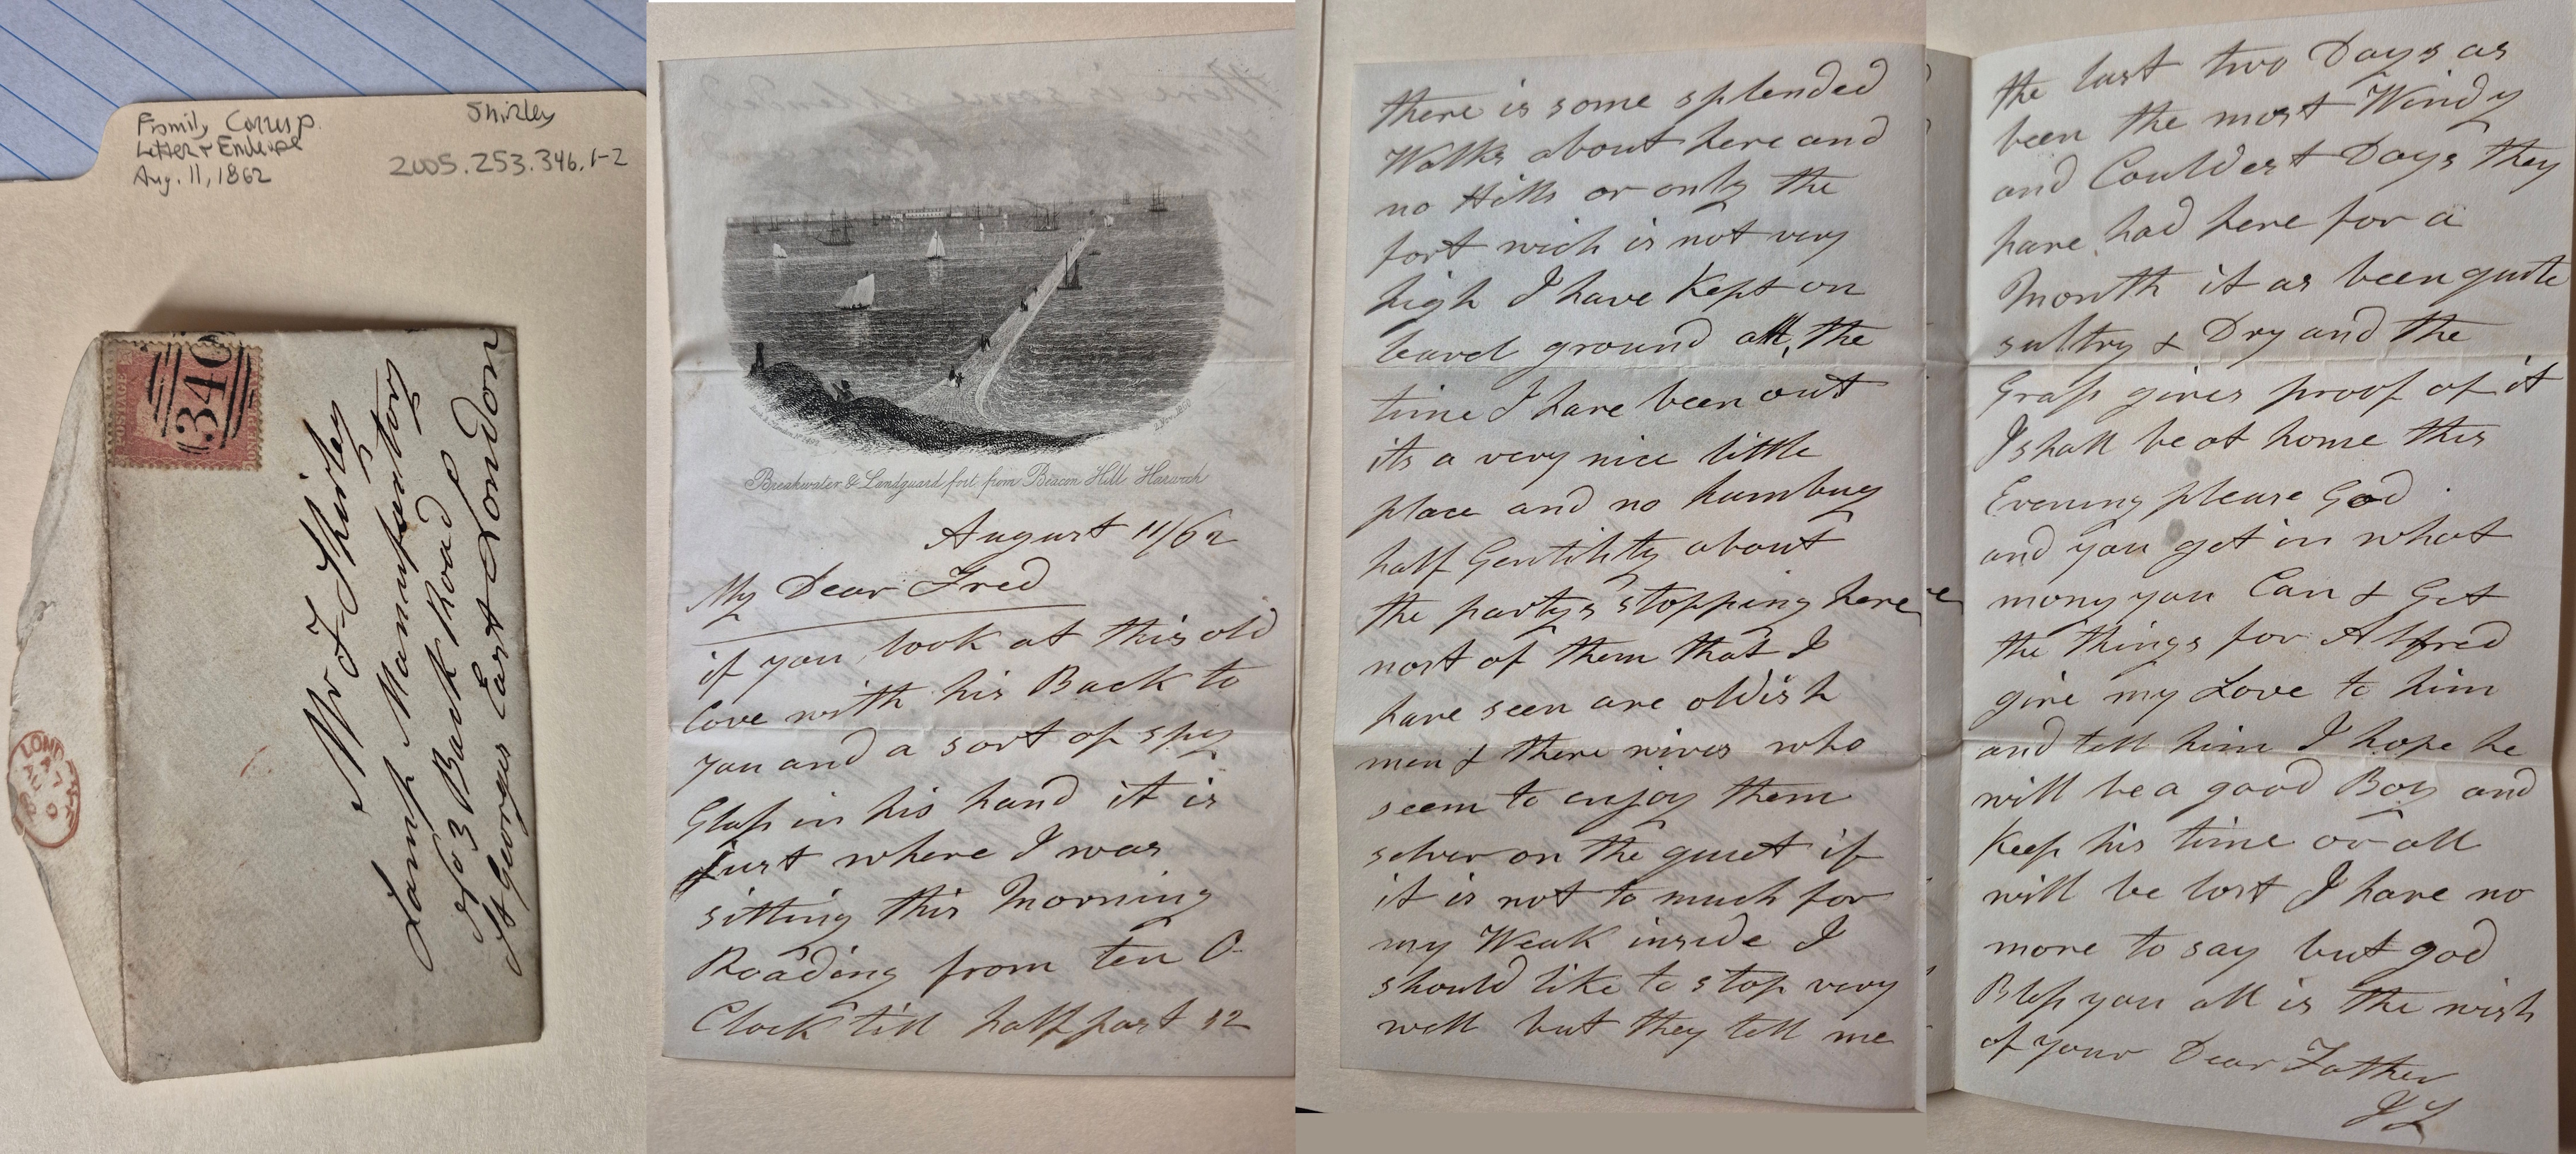 Family Corresp.
Letter & Envelope
Aug. 11, 1862
Shirley
2005.253.346.1-2
POSTAGE
340
LOND
AU
62
Mr F Shirley
Lamp Manufauntory
No 3 Back Road
St Georges East London
Breakwater & Landguard fort from Beacon Hill Harwich
August 11/62
My Dear Fred
if you look at this old
Cove with his Back to
you and a sort of spy
Glass in his hand it is
just where I was
sitting this Morning
Roading from ten O-
Clock till half past 12
there is some splended
Walks about here and
no Hills or only the
fort wich is not very
high I have Kept on
leavel ground all, the
time I have been out
its a very nice little
place and no humbug
half Gentility about
the partys stopping here
most of them that I
have seen are oldish
men & there wives who
seem to enjoy them
selves on the quiet if
it is not to much for
my Weak inside I
should like to stop very
well but they tell me
the last two Days as
been the most Windy
and Couldest Days they
have had here for a
Month it as been quite
sultry & Dry and the
Grass gives proof of it
I shall be at home this
Evening please God
and you get in what
mony you Can & Get
the things for Alfred
give my Love to him
and tell him I hope he
will be a good Boy and
Keep his time or all
will be lost I have no
more to say but god
Bless you all is the wish
of your Dear Father